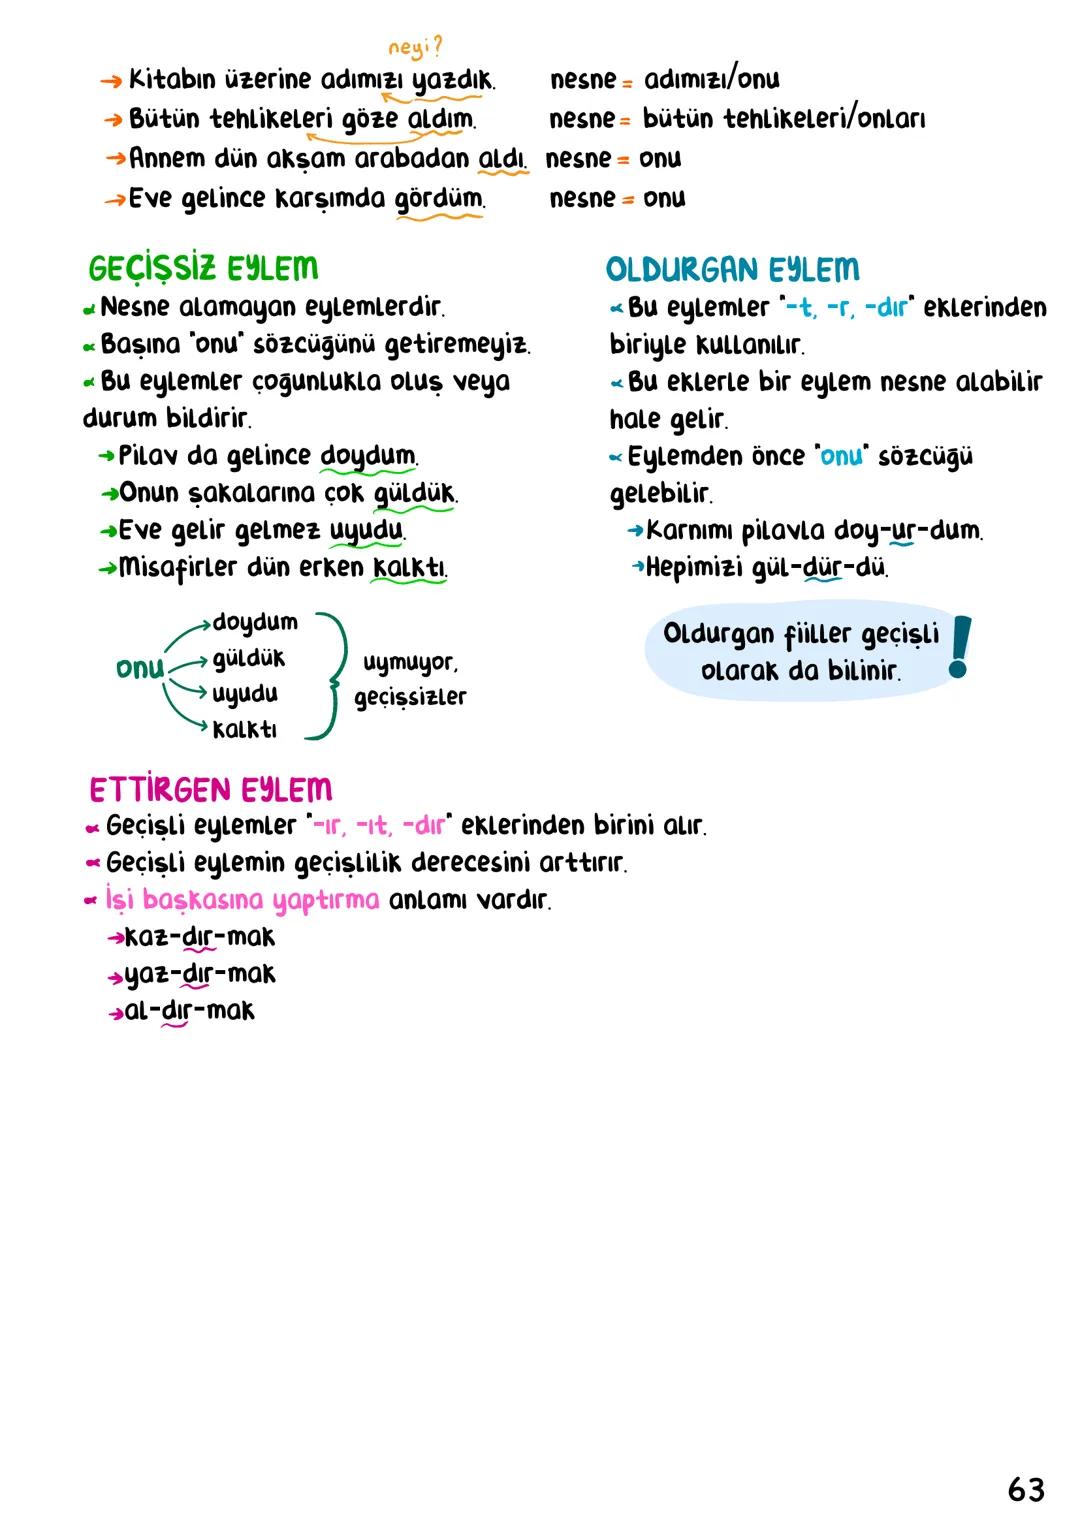 neyi?
→ Kitabın üzerine adımızı yazdık. nesne = adımızı/onu
→ Bütün tehlikeleri göze aldım. nesne = bütün tehlikeleri/onları
→ Annem dün akşam arabadan aldı. nesne = onu
→ Eve gelince karşımda gördüm. nesne = onu
GEÇİŞSİZ EYLEM
Nesne alamayan eylemlerdir.
Başına "onu" sözcüğünü getiremeyiz.
Bu eylemler çoğunlukla oluş veya
durum bildirir.
→ Pilav da gelince doydum.
→ Onun şakalarına çok güldük.
→ Eve gelir gelmez uyudu.
→ Misafirler dün erken kalktı.
onu
→ doydum
→ güldük
→ uyudu
→ kalktı
uymuyor,
geçişsizler
OLDURGAN EYLEM
Bu eylemler "-t, -r, -dır" eklerinden
biriyle kullanılır.
Bu eklerle bir eylem nesne alabilir
hale gelir.
Eylemden önce "onu" sözcüğü
gelebilir.
→ Karnımı pilavla doy-ur-dum.
→ Hepimizi gül-dür-dü.
Oldurgan fiiller geçişli
olarak da bilinir.
!
ETTİRGEN EYLEM
Geçişli eylemler "-ır, -ıt, -dır" eklerinden birini alır.
Geçişli eylemin geçişlilik derecesini arttırır.
İşi başkasına yaptırma anlamı vardır.
→ kaz-dır-mak
→ yaz-dır-mak
→ al-dır-mak
63